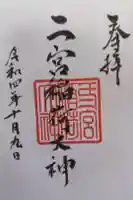 奉拝
二宮稲荷大神
令和四年十月九日